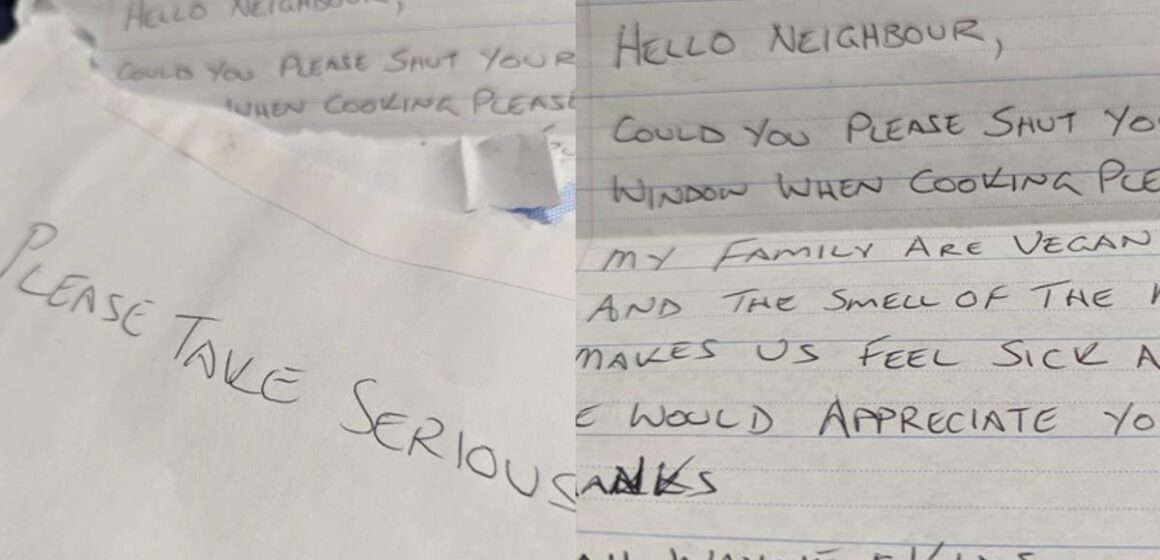 HELLO NEIGHBOUR,
COULD YOU PLEASE SHUT YOUR
WHEN COOKING PLEASE
PLEASE TAKE SERIOUS
HELLO NEIGHBOUR,
COULD YOU PLEASE SHUT YO
WINDOW WHEN COOKING PLE
MY FAMILY ARE VEGAN
AND THE SMELL OF THE
MAKES US FEEL SICK A
WOULD APPRECIATE YO